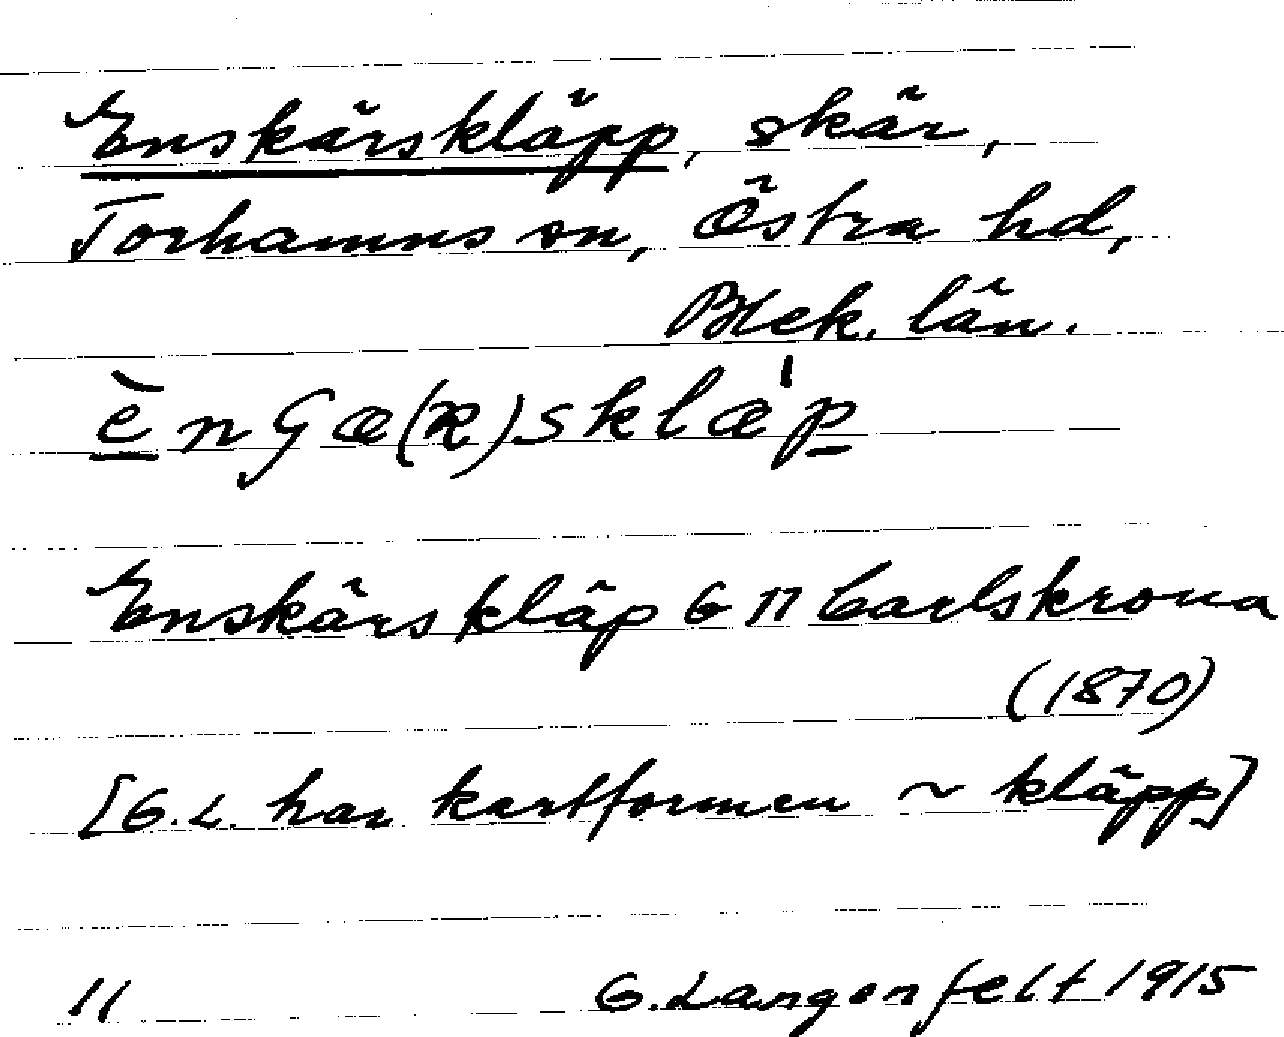 Enskärskläpp, skär,
Torhamns sn, Östra hd,
Blek. län.
ènGæ(ʀ)sklæ'p
Enskärskläp G II Carlskrona
(1870)
[G.L. har kartformen ~ kläpp]
11 G. Langenfelt 1915